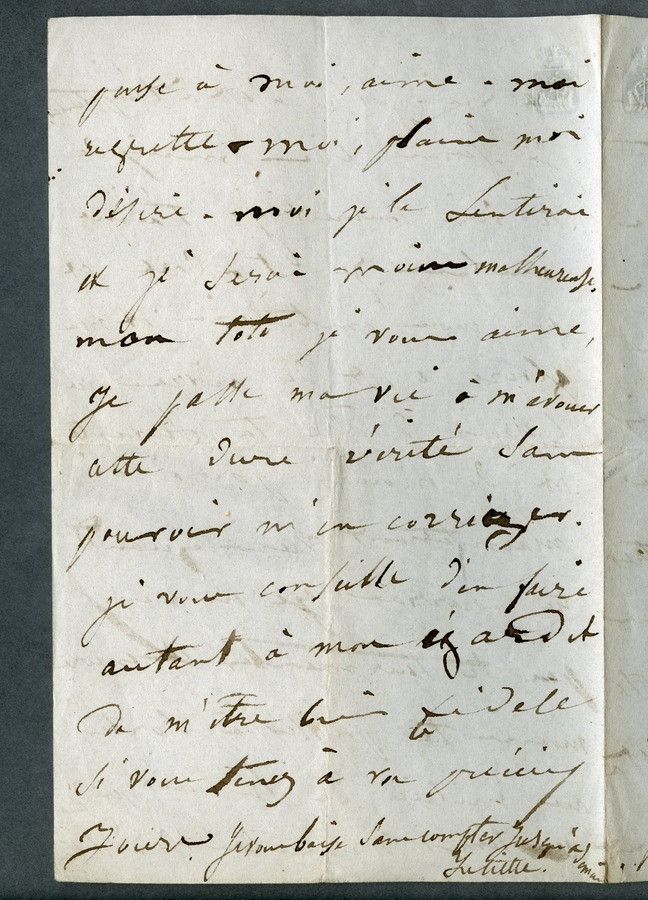 pense à moi, aime-moi
regrette-moi, plains moi
désire-moi je le sentirai
et je serai moins malheureuse.
mon Toto je vous aime,
Je passe ma vie à m'avouer
cette dure vérité sans
pouvoir m'en corriger.
je vous conseille d'en faire
autant à mon égard et
de m'être bien fidèle
si vous tenez à vos précieux
Jours. Je vous baise sans compter jusqu'à demain
Juliette.